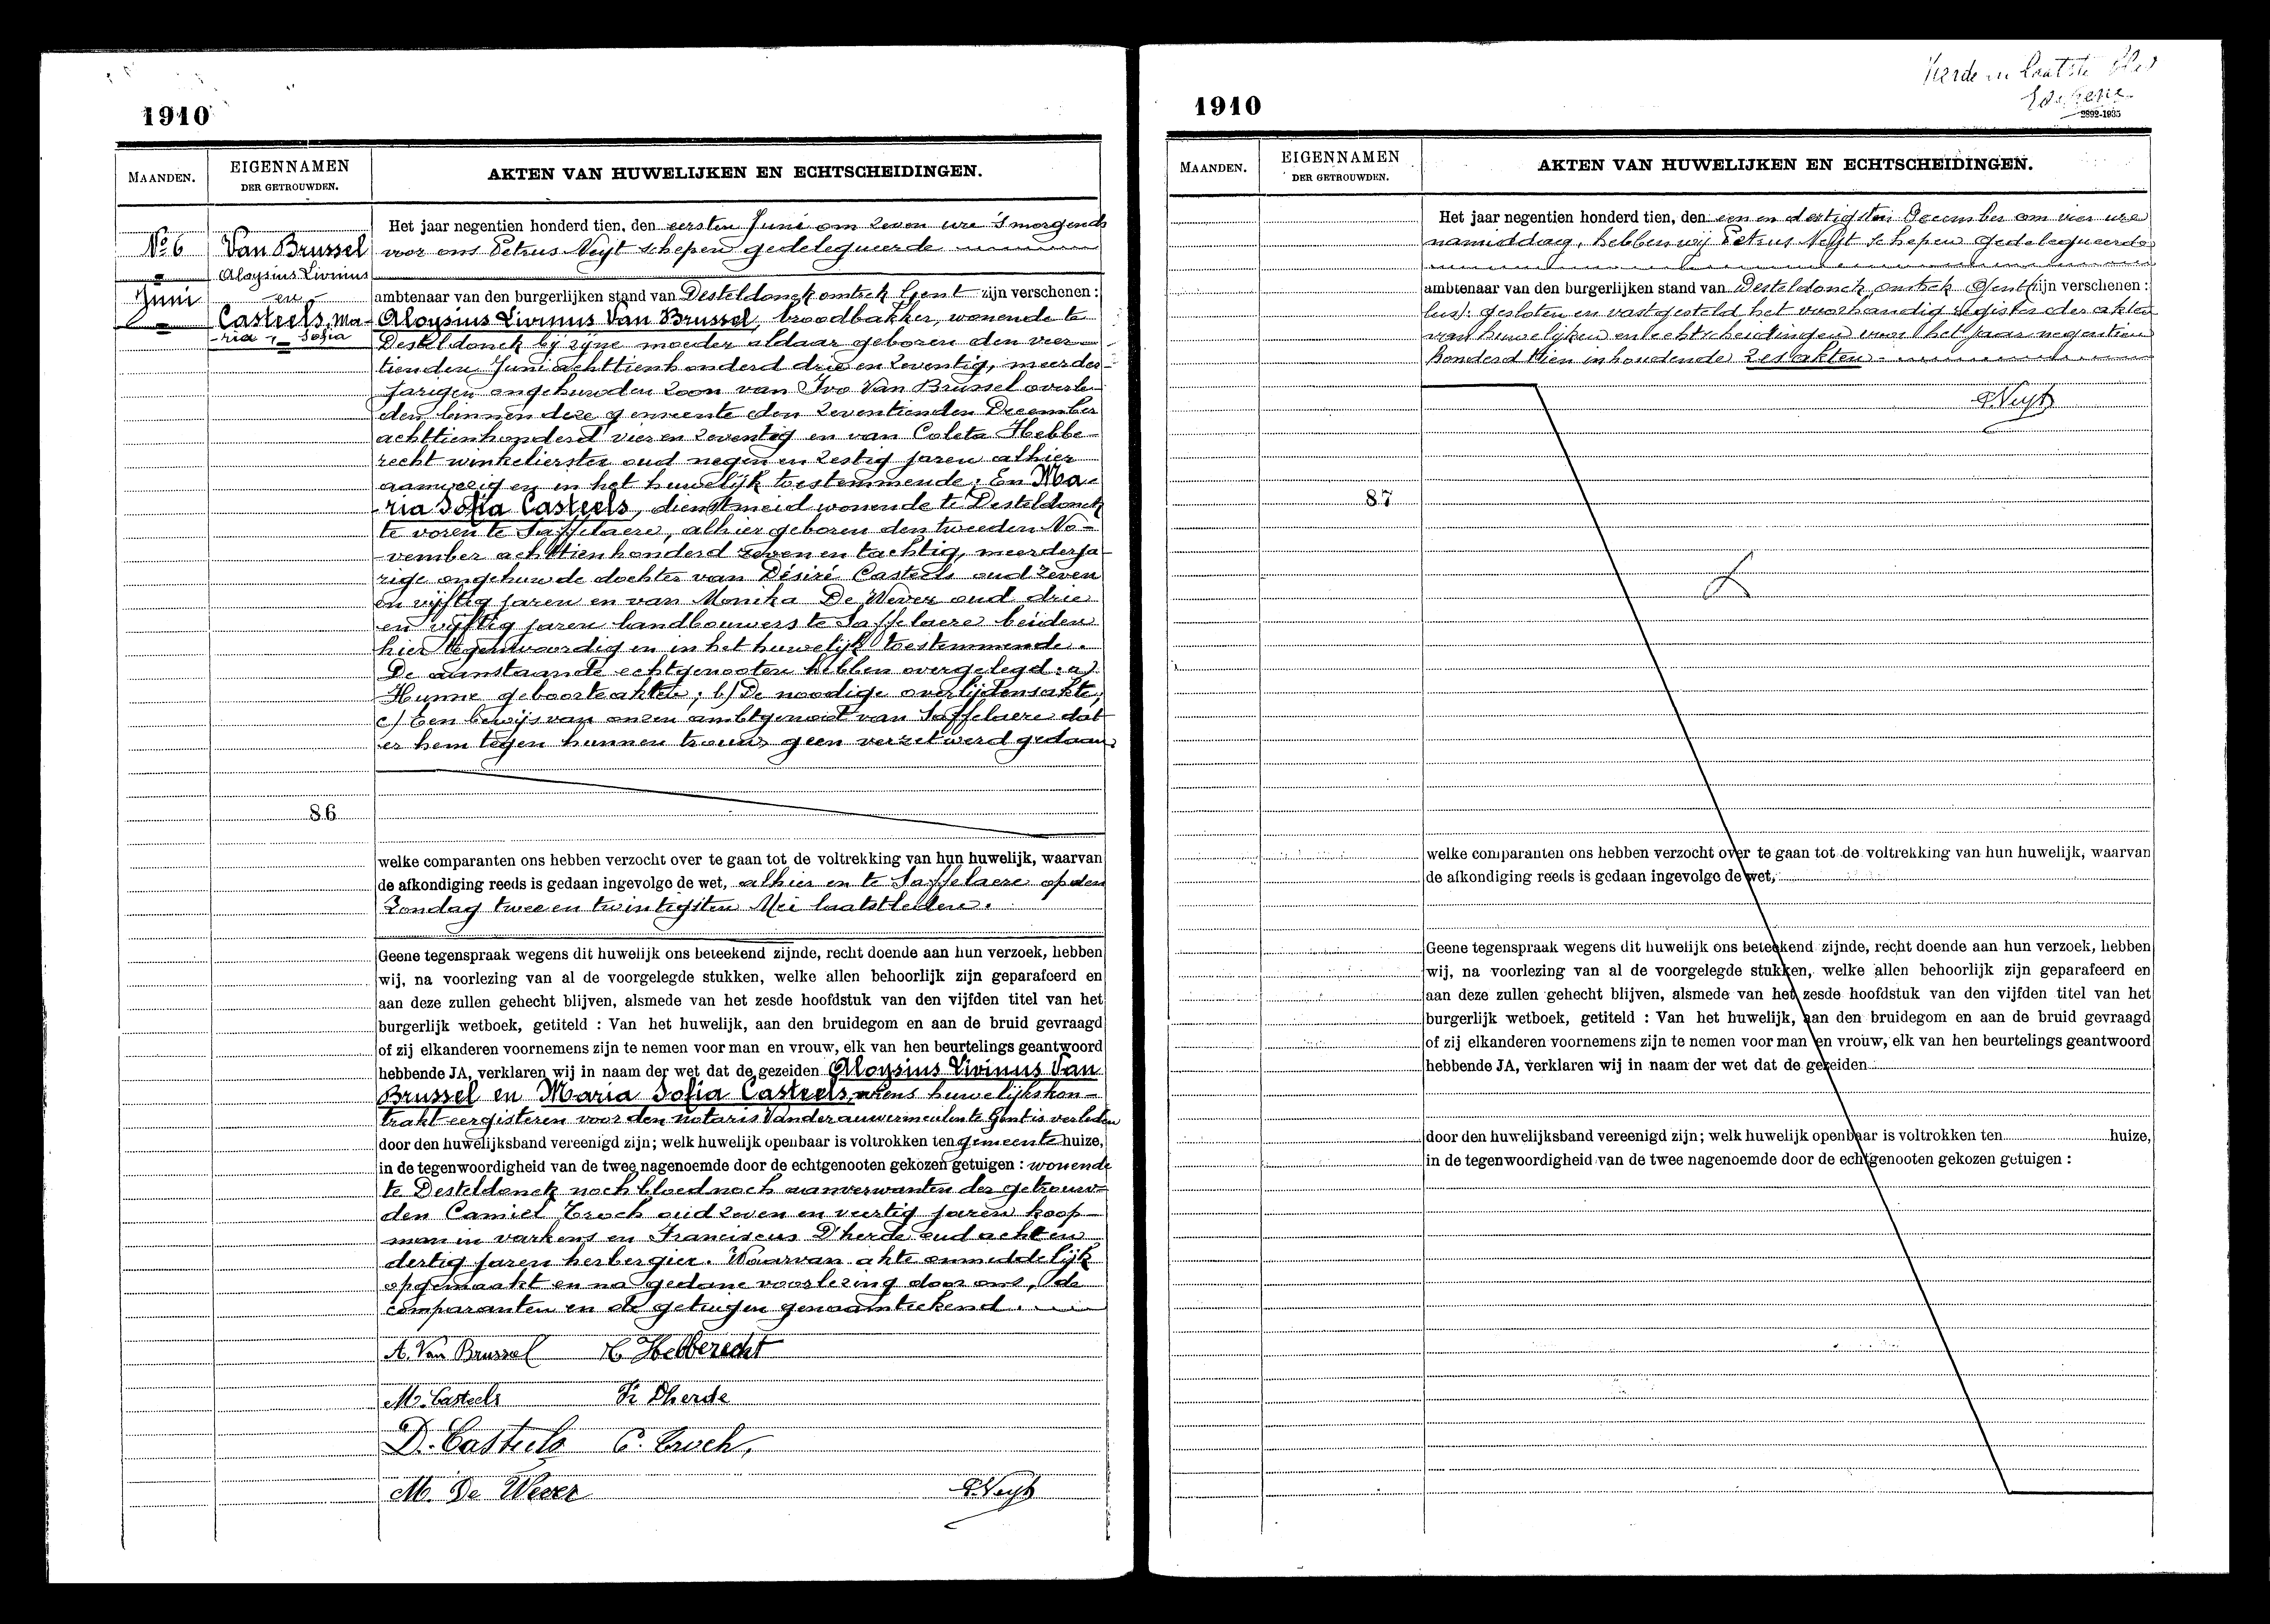 1910
MAANDEN.
EIGENNAMEN
DER GETROUWDEN.
AKTEN VAN HUWELIJKEN EN ECHTSCHEIDINGEN.
No 6
Juni
Van Brussel
Aloysius Livinus
en
Casteels, Ma-
ria Sofia
86
Het jaar negentien honderd tien, den eersten Juni om zeven ure 's morgends
voor ons Petrus Neyt schepen gedelegueerde
ambtenaar van den burgerlijken stand van Desteldonck omtrek Gent zijn verschenen :
Aloysius Livinus Van Brussel, broodbakker, wonende te
Desteldonck bij zijne moeder aldaar geboren den veer-
tienden Juni achttienhonderd drie en zeventig, meerder-
jarigen ongehuwden zoon van Ivo Van Brussel overle-
den binnen deze gemeente den zeventienden December
achttienhonderd vier en zeventig en van Coleta Hebbe-
recht winkelierster oud negen en zestig jaren alhier
aanwezig en in het huwelijk toestemmende; En Ma-
ria Sofia Casteels, dienstmeid wonende te Desteldonck
te voren te Saffelaere, alhier geboren den tweeden No-
vember achttienhonderd zeven en tachtig, meerderja-
rige ongehuwde dochter van Désiré Casteels oud zeven
en vijftig jaren en van Monika De Wever oud drie
en vijftig jaren landbouwers te Saffelaere beiden
hier tegenwoordig en in het huwelijk toestemmende.
De aanstaande echtgenooten hebben overgelegd: a)
Hunne geboorteakten; b) De noodige overlijdensakte;
c) Een bewijs van onzen ambtgenoot van Saffelaere dat
er hem tegen hunnen trouw geen verzet werd gedaan.
welke comparanten ons hebben verzocht over te gaan tot de voltrekking van hun huwelijk, waarvan
de afkondiging reeds is gedaan ingevolge de wet, alhier en te Saffelaere op den
Zondag twee en twintigsten Mei laatstleden.
Geene tegenspraak wegens dit huwelijk ons beteekend zijnde, recht doende aan hun verzoek, hebben
wij, na voorlezing van al de voorgelegde stukken, welke allen behoorlijk zijn geparafeerd en
aan deze zullen gehecht blijven, alsmede van het zesde hoofdstuk van den vijfden titel van het
burgerlijk wetboek, getiteld : Van het huwelijk, aan den bruidegom en aan de bruid gevraagd
of zij elkanderen voornemens zijn te nemen voor man en vrouw, elk van hen beurtelings geantwoord
hebbende JA, verklaren wij in naam der wet dat de gezeiden Aloysius Livinus Van
Brussel en Maria Sofia Casteels, wiens huwelijkskon-
trakt eergisteren voor den notaris Vanderauwermeulen te Gent is verleden
door den huwelijksband vereenigd zijn; welk huwelijk openbaar is voltrokken ten gemeente huize,
in de tegenwoordigheid van de twee nagenoemde door de echtgenooten gekozen getuigen : wonende
te Desteldonck noch bloed noch aanverwanten der getrouw-
den Camiel Troch oud zeven en veertig jaren koop-
man in varkens en Franciscus D'herde oud acht en
dertig jaren herbergier. Waarvan akte onmiddelijk
opgemaakt en na gedane voorlezing door ons, de
comparanten en de getuigen genaamteekend.
A. Van Brussel C Hebberecht
M. Casteels Fr Dherde
D. Casteels C. Troch,
M. De Wever P. Neyt
Vierde en laatste blad
2892-1935
1910
MAANDEN.
EIGENNAMEN
DER GETROUWDEN.
AKTEN VAN HUWELIJKEN EN ECHTSCHEIDINGEN.
87
Het jaar negentien honderd tien, den een en dertigsten December om vier ure
namiddag, hebben wij Petrus Neyt schepen gedelegueerde
ambtenaar van den burgerlijken stand van Desteldonck, omtrek Gent zijn verschenen :
lus): gesloten en vastgesteld het voorhandig register der akten
van huwelijken en echtscheidingen voor het jaar negentien
honderd tien inhoudende zes akten.
P. Neyt
welke comparanten ons hebben verzocht over te gaan tot de voltrekking van hun huwelijk, waarvan
de afkondiging reeds is gedaan ingevolge de wet,
Geene tegenspraak wegens dit huwelijk ons beteekend zijnde, recht doende aan hun verzoek, hebben
wij, na voorlezing van al de voorgelegde stukken, welke allen behoorlijk zijn geparafeerd en
aan deze zullen gehecht blijven, alsmede van het zesde hoofdstuk van den vijfden titel van het
burgerlijk wetboek, getiteld : Van het huwelijk, aan den bruidegom en aan de bruid gevraagd
of zij elkanderen voornemens zijn te nemen voor man en vrouw, elk van hen beurtelings geantwoord
hebbende JA, verklaren wij in naam der wet dat de gezeiden
door den huwelijksband vereenigd zijn; welk huwelijk openbaar is voltrokken ten huize,
in de tegenwoordigheid van de twee nagenoemde door de echtgenooten gekozen getuigen :